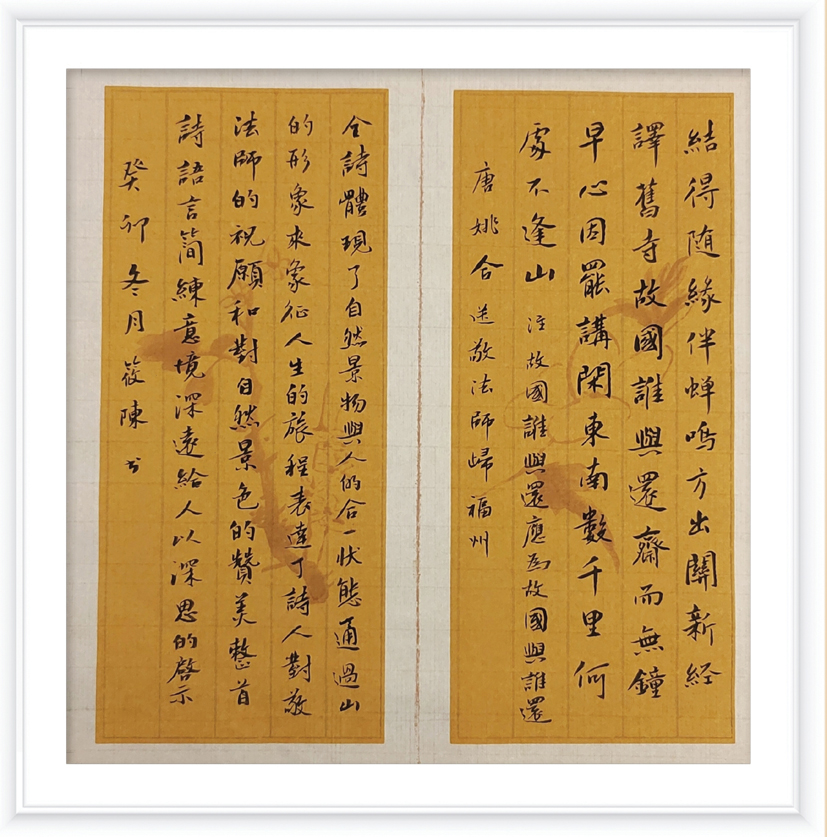 結得随緣伴蟬鳴方出關新經
譯舊寺故國誰與還齋而無鐘
早心因罷講閑東南數千里何
處不逢山 注故國誰與還應為故國與誰還
唐姚合送敬法師歸福州
全詩體現了自然景物與人的合一狀態通過山
的形象來象征人生的旅程表達了詩人對敬
法師的祝願和對自然景色的贊美整首
詩語言簡練意境深遠給人以深思的啓示
癸卯冬月筱陳书